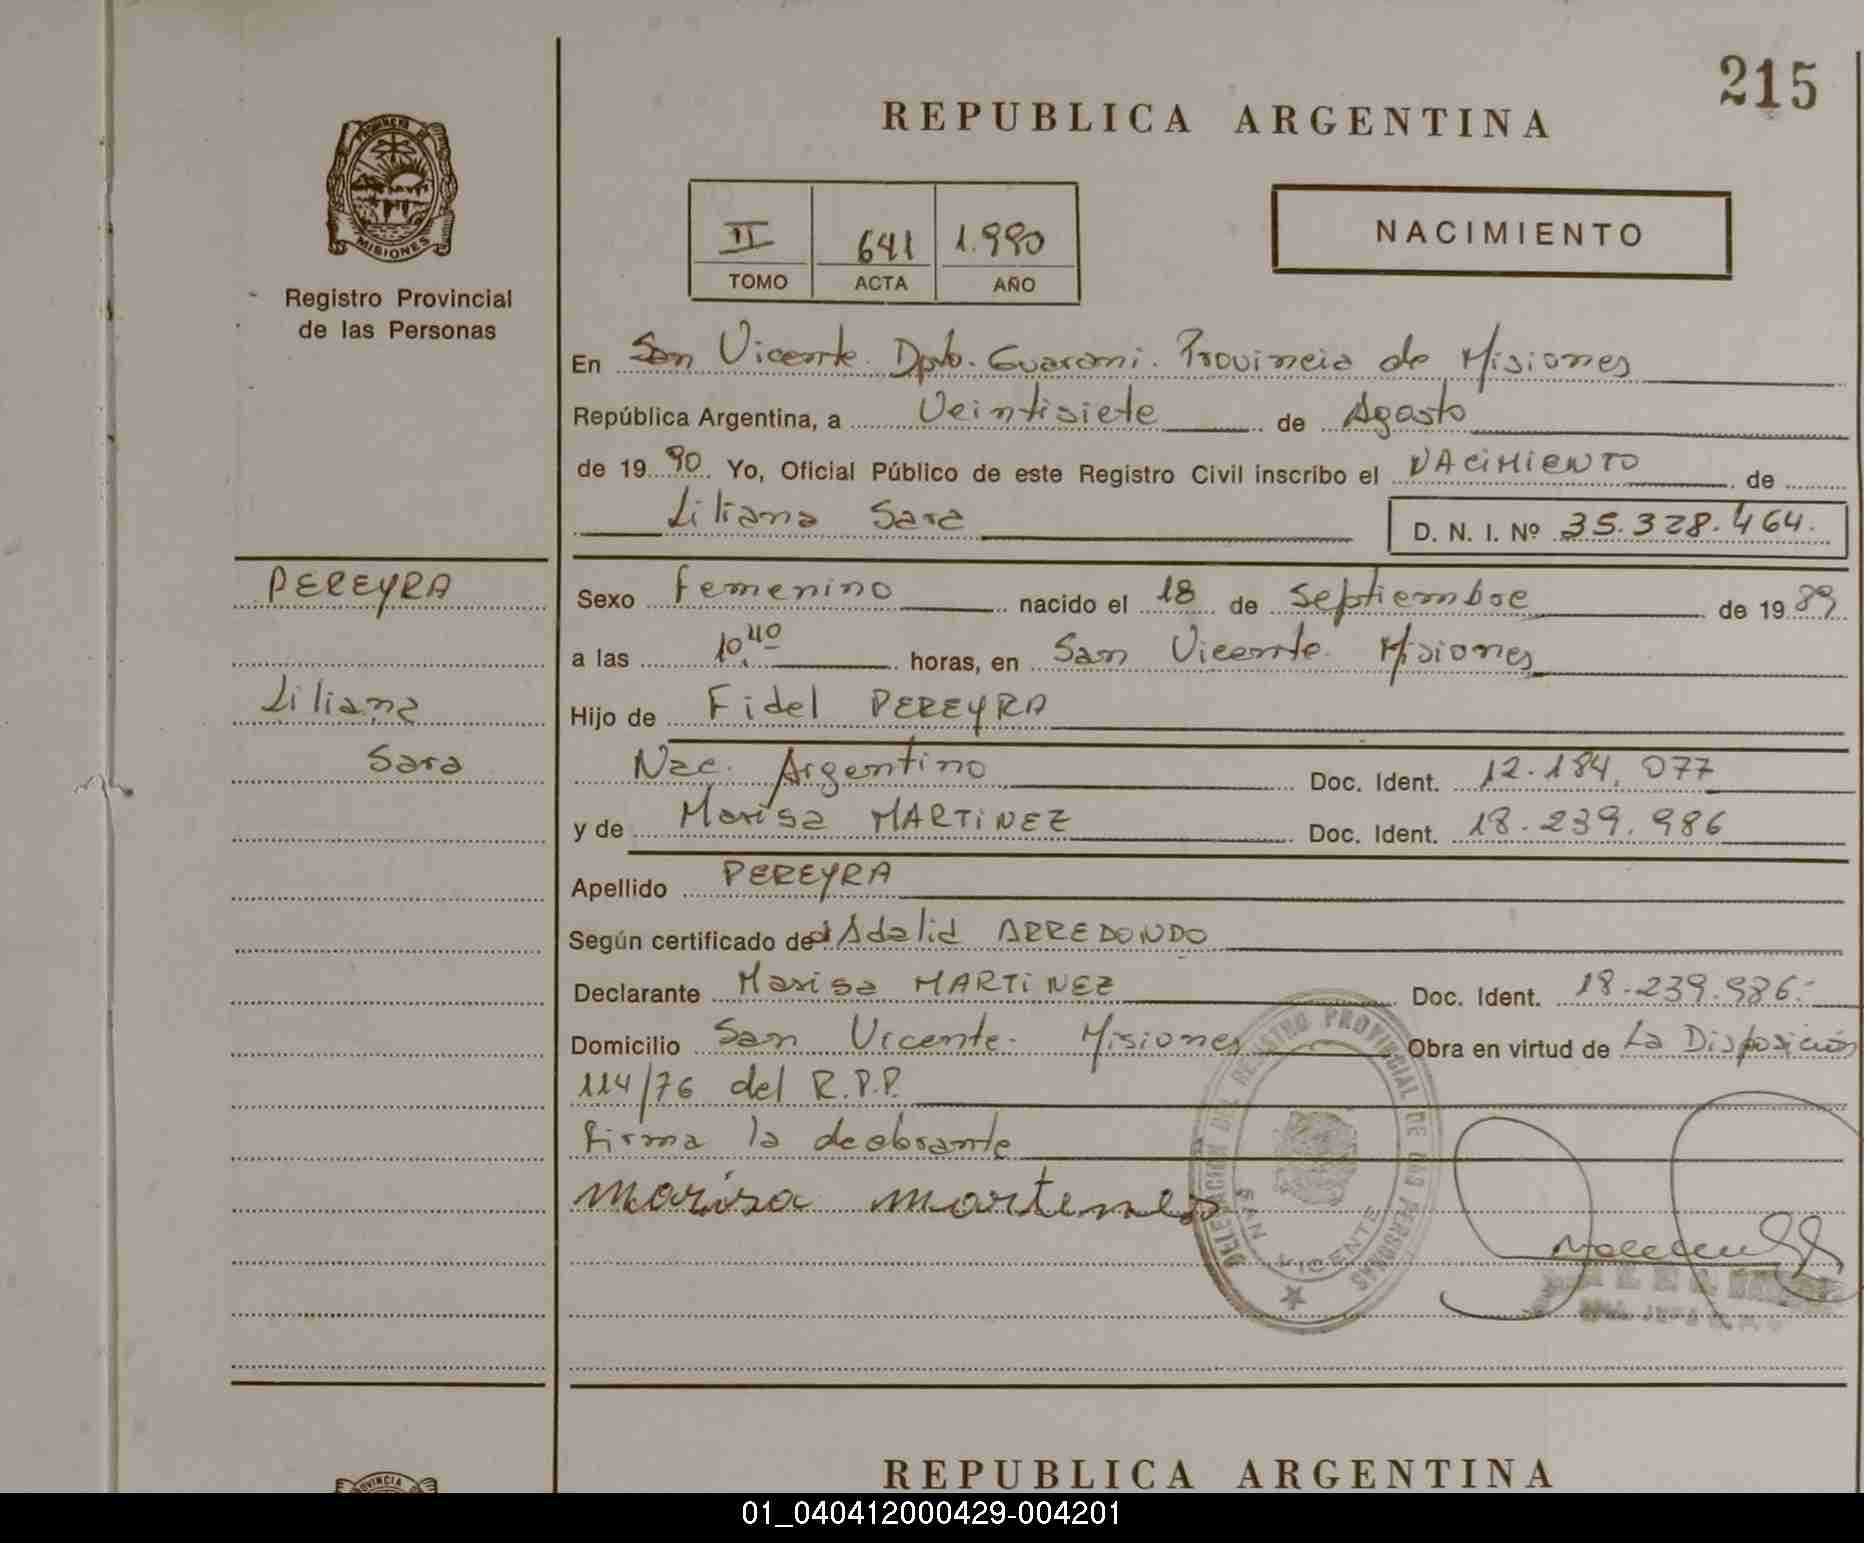 215
REPUBLICA ARGENTINA
PROVINCIA DE
MISIONES
Registro Provincial
de las Personas
II 641 1.990
TOMO ACTA AÑO
NACIMIENTO
En San Vicente. Dpto. Guarani. Provincia de Misiones
República Argentina, a Veintisiete de Agosto
de 19 90 Yo, Oficial Público de este Registro Civil inscribo el NACIMIENTO de
Liliana Sara D. N. I. Nº 35.328.464.
PEREYRA
Liliana
Sara
Sexo femenino nacido el 18 de Septiembre de 19 89
a las 10,40 horas, en San Vicente. Misiones
Hijo de Fidel PEREYRA
Nac. Argentino Doc. Ident. 12.184.077
y de Marisa MARTINEZ Doc. Ident. 18.239.986
Apellido PEREYRA
Según certificado de Adalid ARREDONDO
Declarante Marisa MARTINEZ Doc. Ident. 18.239.986.
Domicilio San Vicente. Misiones Obra en virtud de La Disposición
114/76 del R.P.P.
firma la declarante
marisa martines
DELEGACION DEL REGISTRO PROVINCIAL DE LAS PERSONAS
SAN VICENTE
REPUBLICA ARGENTINA
01_040412000429-004201